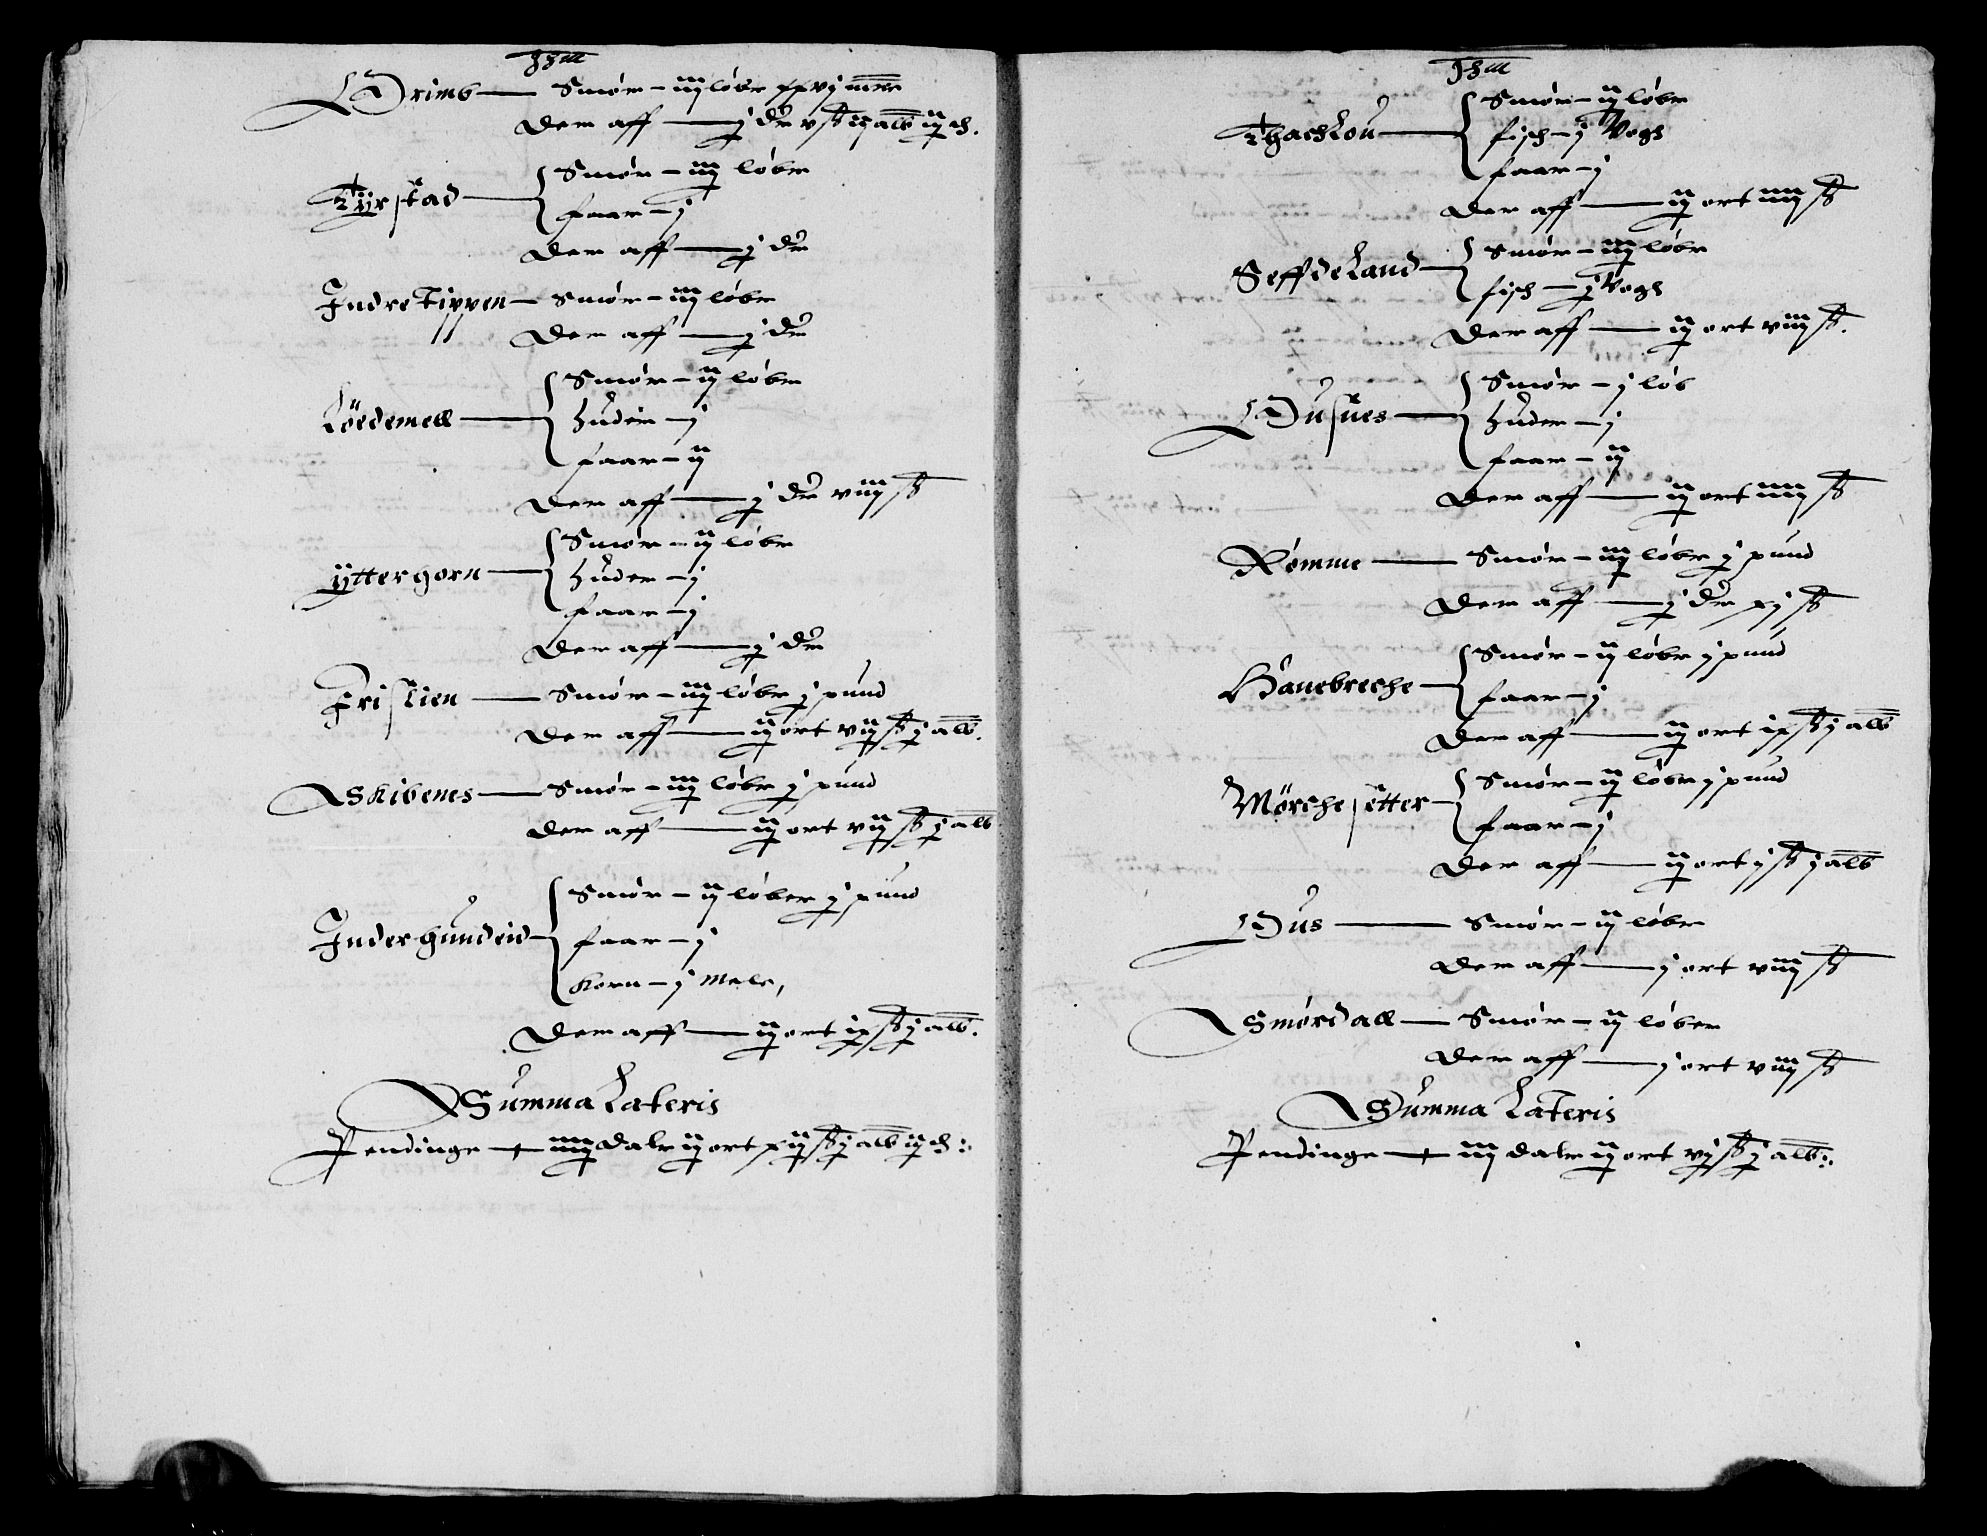 Item
Grimb — Smør — iij løbe xxvj mrc
Der aff — j dlr v ß ij alb ij ch.
Tyrstad — Smør — iij løbe
Faar — j
Der aff — j dlr
Indre Tippen — Smør — iij løbe
Der aff — j dlr
Løedemell — Smør — ij løbe
Huder — j
Faar — ij
Der aff — j dlr viij ß
Ytterhorn — Smør — ij løbe
Huder — j
Faar — j
Der aff — j dlr
Frislien — Smør — iij løbe j pund
Der aff — iij ort vij ß j alb.
Skibenes — Smør — iij løbe j pund
Der aff — iij ort vij ß j alb
Inderhundeid — Smør — ij løber j pund
Faar — j
Korn — j mele,
Der aff — ij ort ix ß j alb.
Summa Lateris
Pendinge — iiij daler ij ort xij ß j alb ij ch:
Item
Thachlou — Smør — ij løbe
Fisch — j Vogh
Faar — j
Der aff — ij ort iiij ß
Seffdeland — Smør — iij løbe
Fisch — j Vogh
Der aff — ij ort viij ß.
Dusues — Smør — j løb
Huder — j
Faar — ij
Der aff — ij ort iiij ß
Rømme — Smør — iij løbe j pund
Der aff — j dlr xj ß
Hauebreche — Smør — ij løbe j pund
Faar — j
Der aff — ij ort ix ß j alb
Mørchesetter — Smør — ij løbe j pund
Faar — j
Der aff — ij ort j ß j alb
Dus — Smør — ij løbe
Der aff — j ort viij ß
Smørdall — Smør — ij løber
Der aff — j ort viij ß
Summa Lateris
Pendinge — iij daler ij ort vj ß j alb: